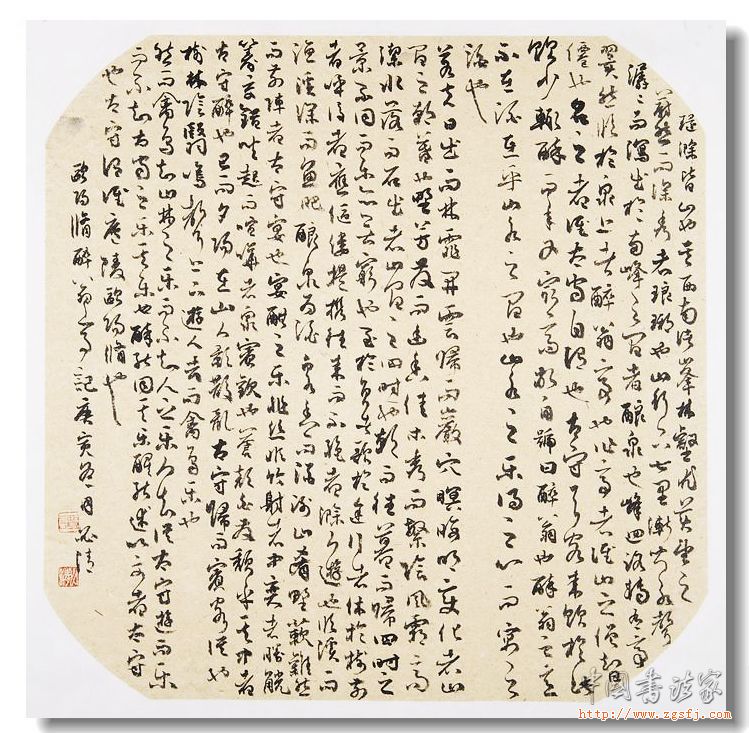 環滁皆山也其西南諸峰林壑尤美望之
蔚然而深秀者瑯琊也山行六七里漸聞水聲
潺潺而瀉出於兩峰之間者釀泉也峰回路轉有亭
翼然臨於泉上者醉翁亭也作亭者誰山之僧智
僊也名之者誰太守自謂也太守與客來飲於此
飲少輒醉而年又最高故自號曰醉翁也醉翁之意
不在酒在乎山水之間也山水之樂得之心而寓之
酒也
若夫日出而林霏開雲歸而巖穴暝晦明變化者山
間之朝暮也野芳發而幽香佳木秀而繁陰風霜高
潔水落而石出者山間之四時也朝而往暮而歸四時之
景不同而樂亦無窮也至於負者歌於途行者休於樹前
者呼後者應傴僂提攜往來而不絕者滁人遊也臨溪而
漁溪深而魚肥釀泉為酒泉香而酒洌山肴野蔌雜然
而前陳者太守宴也宴酣之樂非絲非竹射者中奕者勝觥
籌交錯坐起而喧嘩者衆賓歡也蒼顏白髮頹乎其中者
太守醉也已而夕陽在山人影散亂太守歸而賓客從也
樹林陰翳鳴聲上下遊人去而禽鳥樂也
然而禽鳥知山林之樂而不知人之樂人知從太守遊而樂
而不知太守之樂其樂也醉能同其樂醒能述以文者太守
也太守謂誰廬陵歐陽脩也
歐陽脩醉翁亭記庚寅冬月清
中国书法家
http://www.zgsfj.com